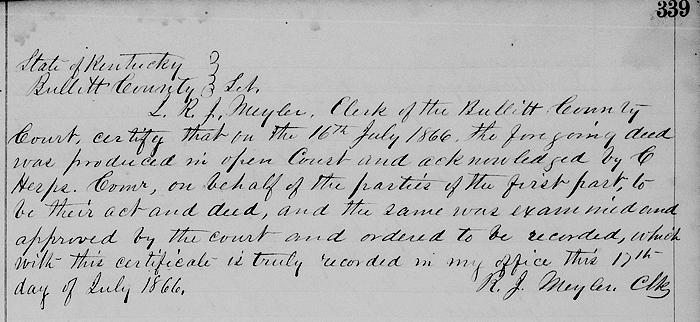 339
State of Kentucky
Bullitt County Sct.
I, R. J. Meyler, Clerk of the Bullitt County
Court, certify that on the 16th July 1866, the foregoing deed
was produced in open Court and acknowledged by C
Herps. Comr, on behalf of the parties of the first part, to
be their act and deed, and the same was examined and
approved by the court and ordered to be recorded, which
with this certificate is truly recorded in my office this 17th
day of July 1866.
R. J. Meyler Clk